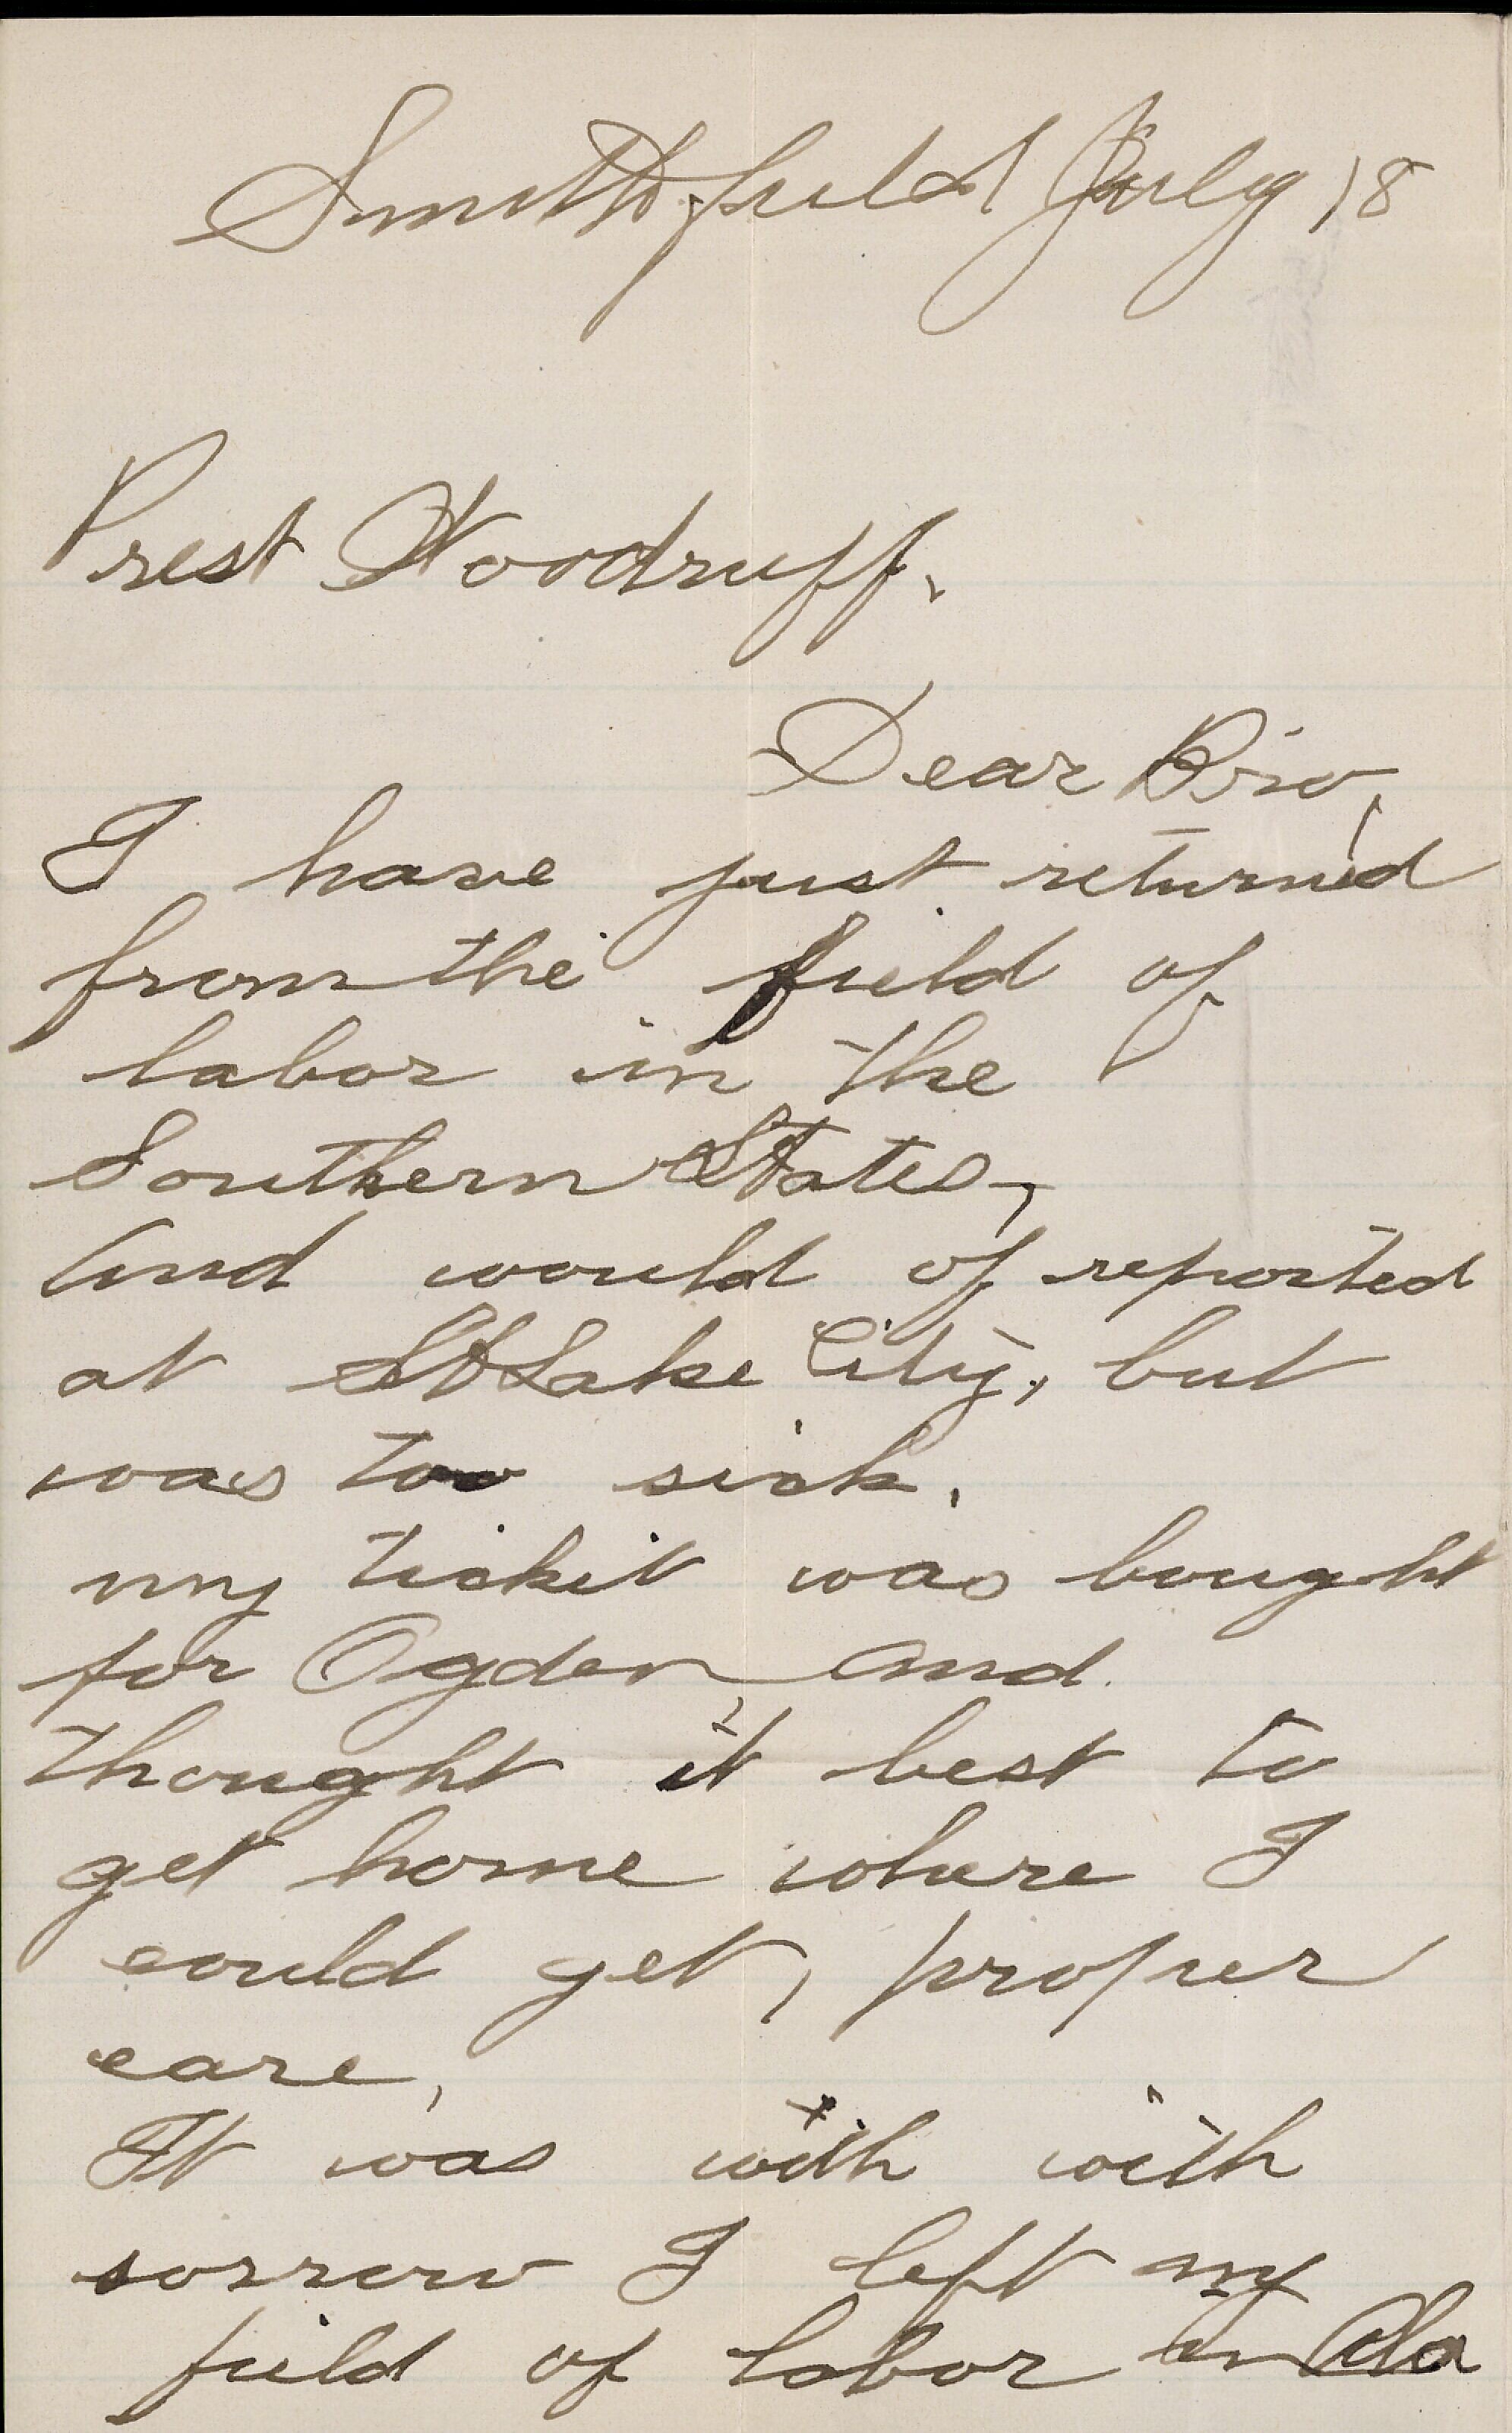 Smithfield July 18
Prest Woodruff.
Dear Bro,
I have just returned
from the field of
labor in the
Southern States,
and would of reported
at St Lake City, but
was too sick.
my tickit was bought
for Ogden, and
thought it best to
get home where I
could get, proper
care,
It was with with
sorrow I left my
field of labor in Ala